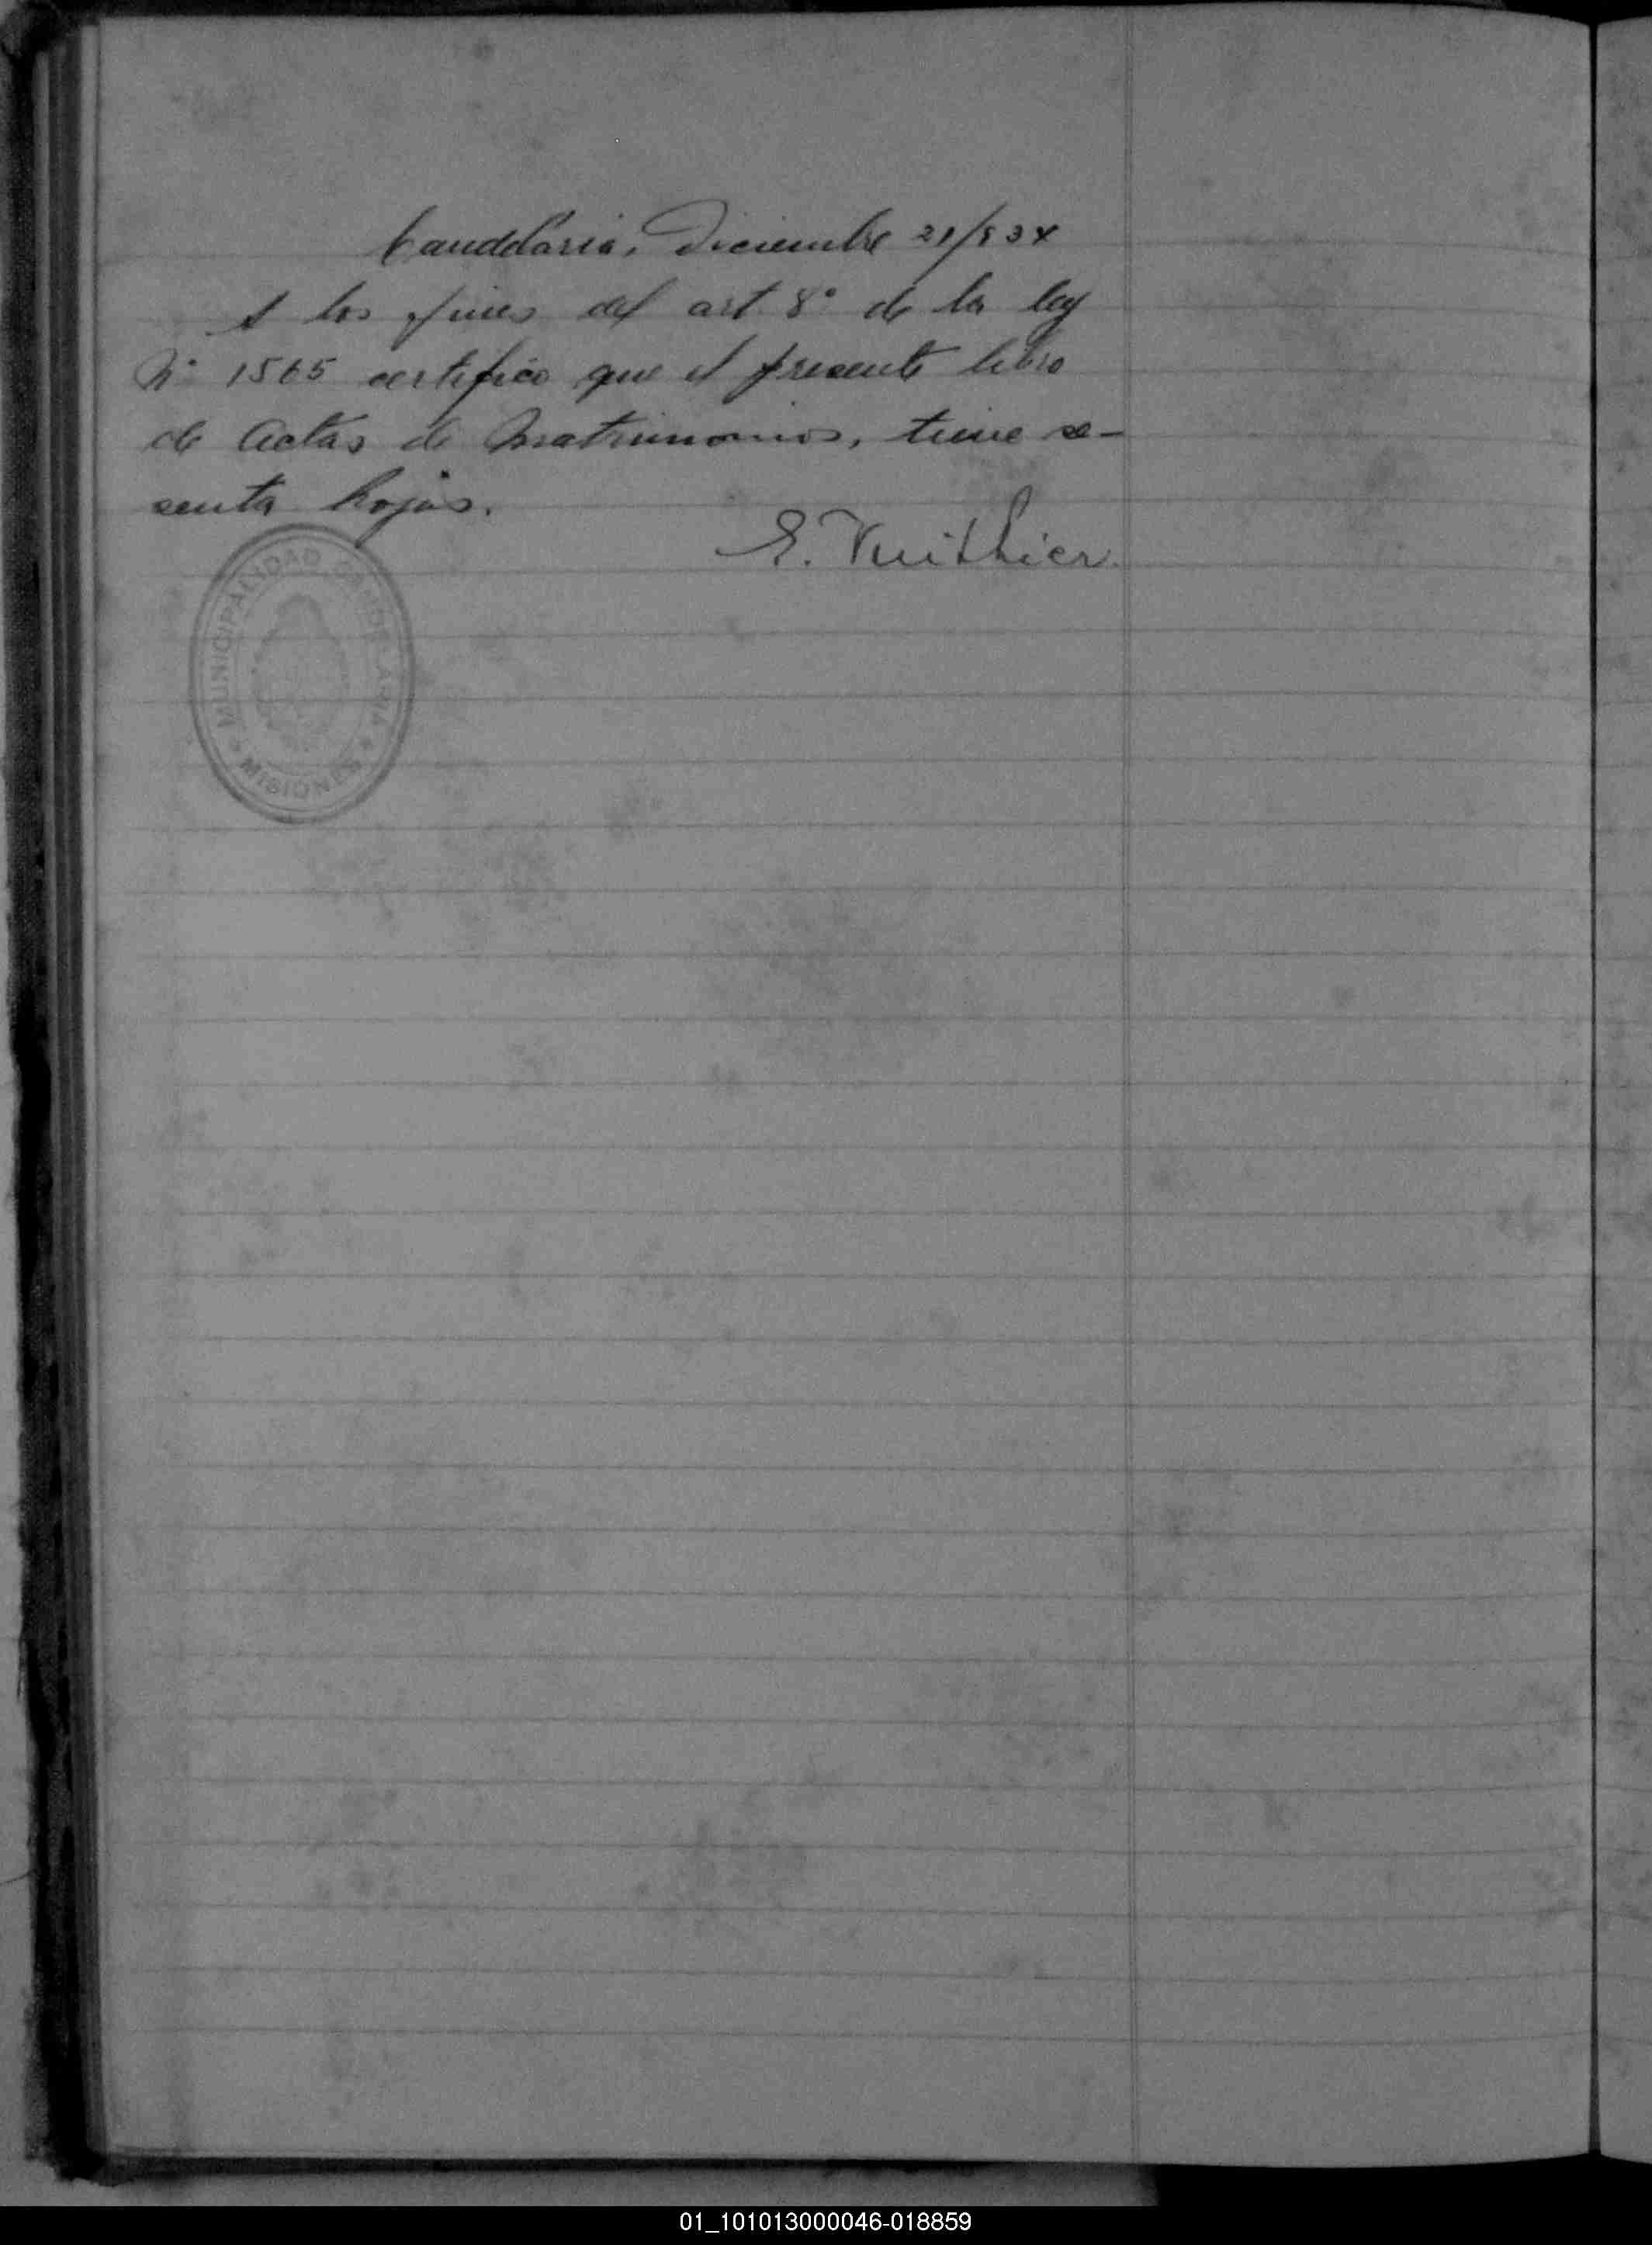 Candelaria, Diciembre 21/934
A los fines del art. 8° de la ley
N° 1565 certifico que el presente libro
de Actas de Matrimonios, tiene se-
senta hojas.
E. Vuithier
MUNICIPALIDAD CANDELARIA
MISIONES
01_101013000046-018859